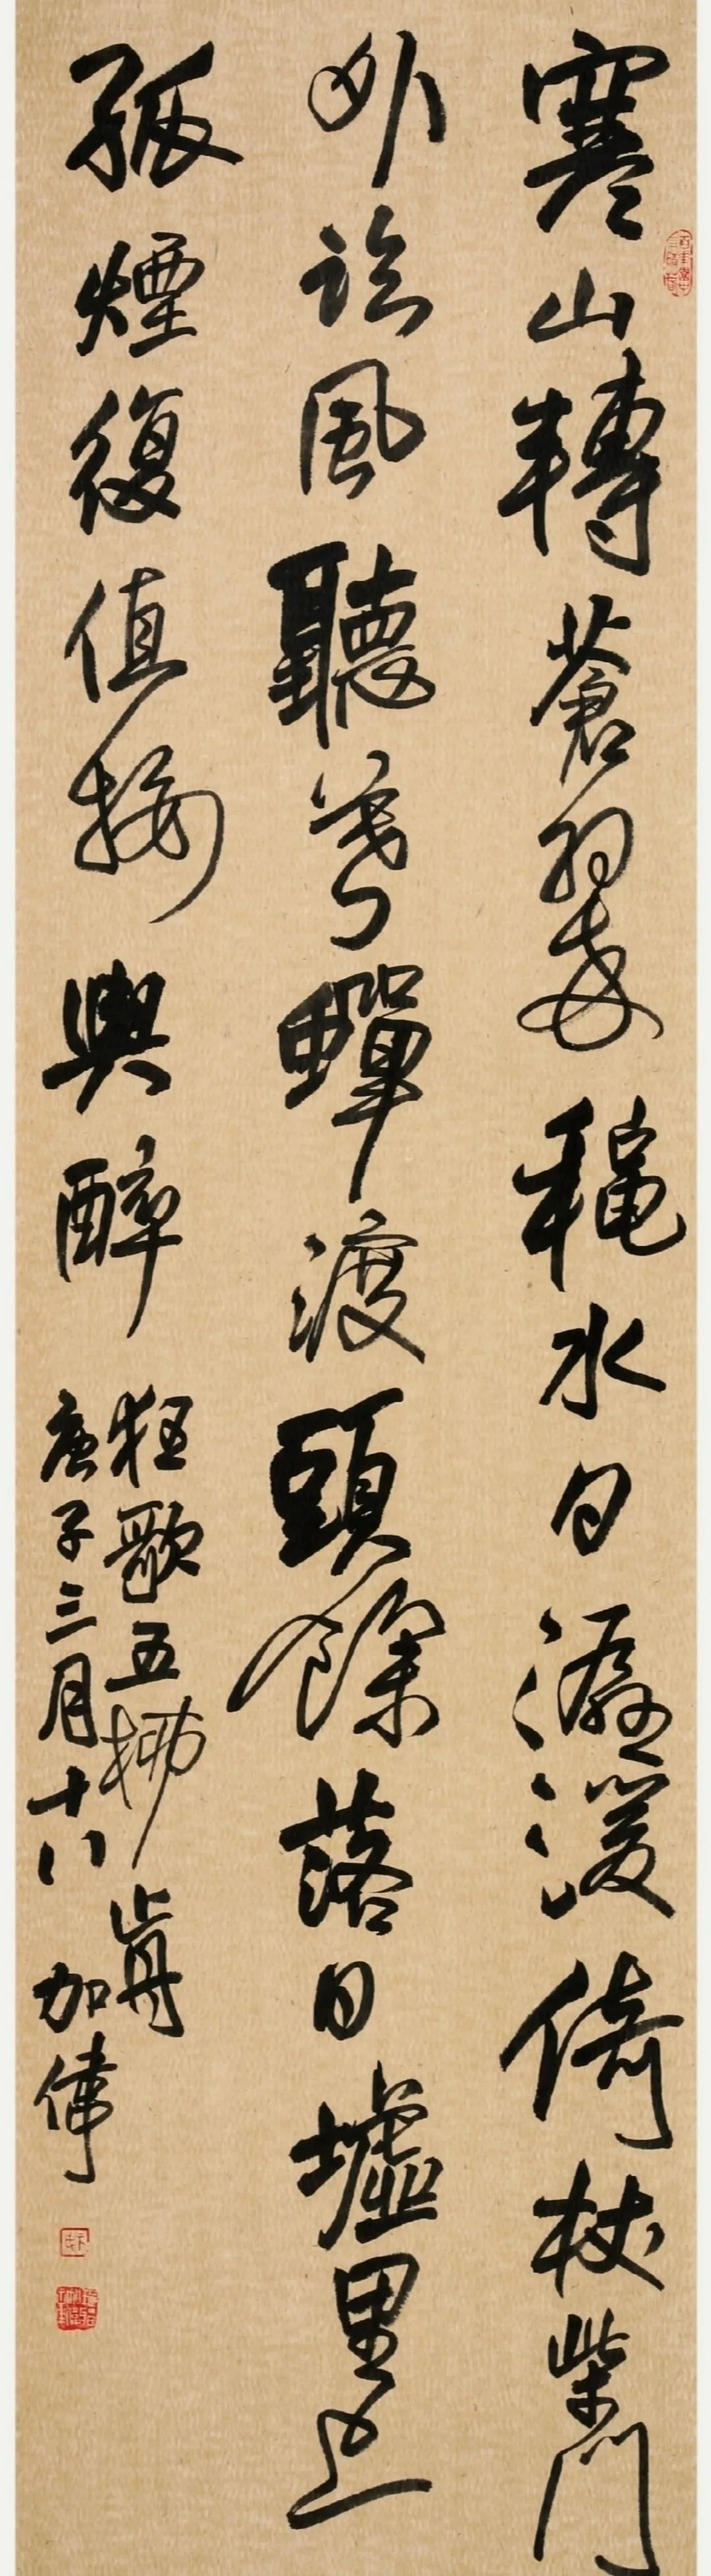 寒山轉蒼翠龝水日潺湲倚杖柴門
外臨風聽暮蟬渡頭餘落日墟里上
孤煙復值接輿醉
狂歌五柳歬
庚子三月十八 加偉